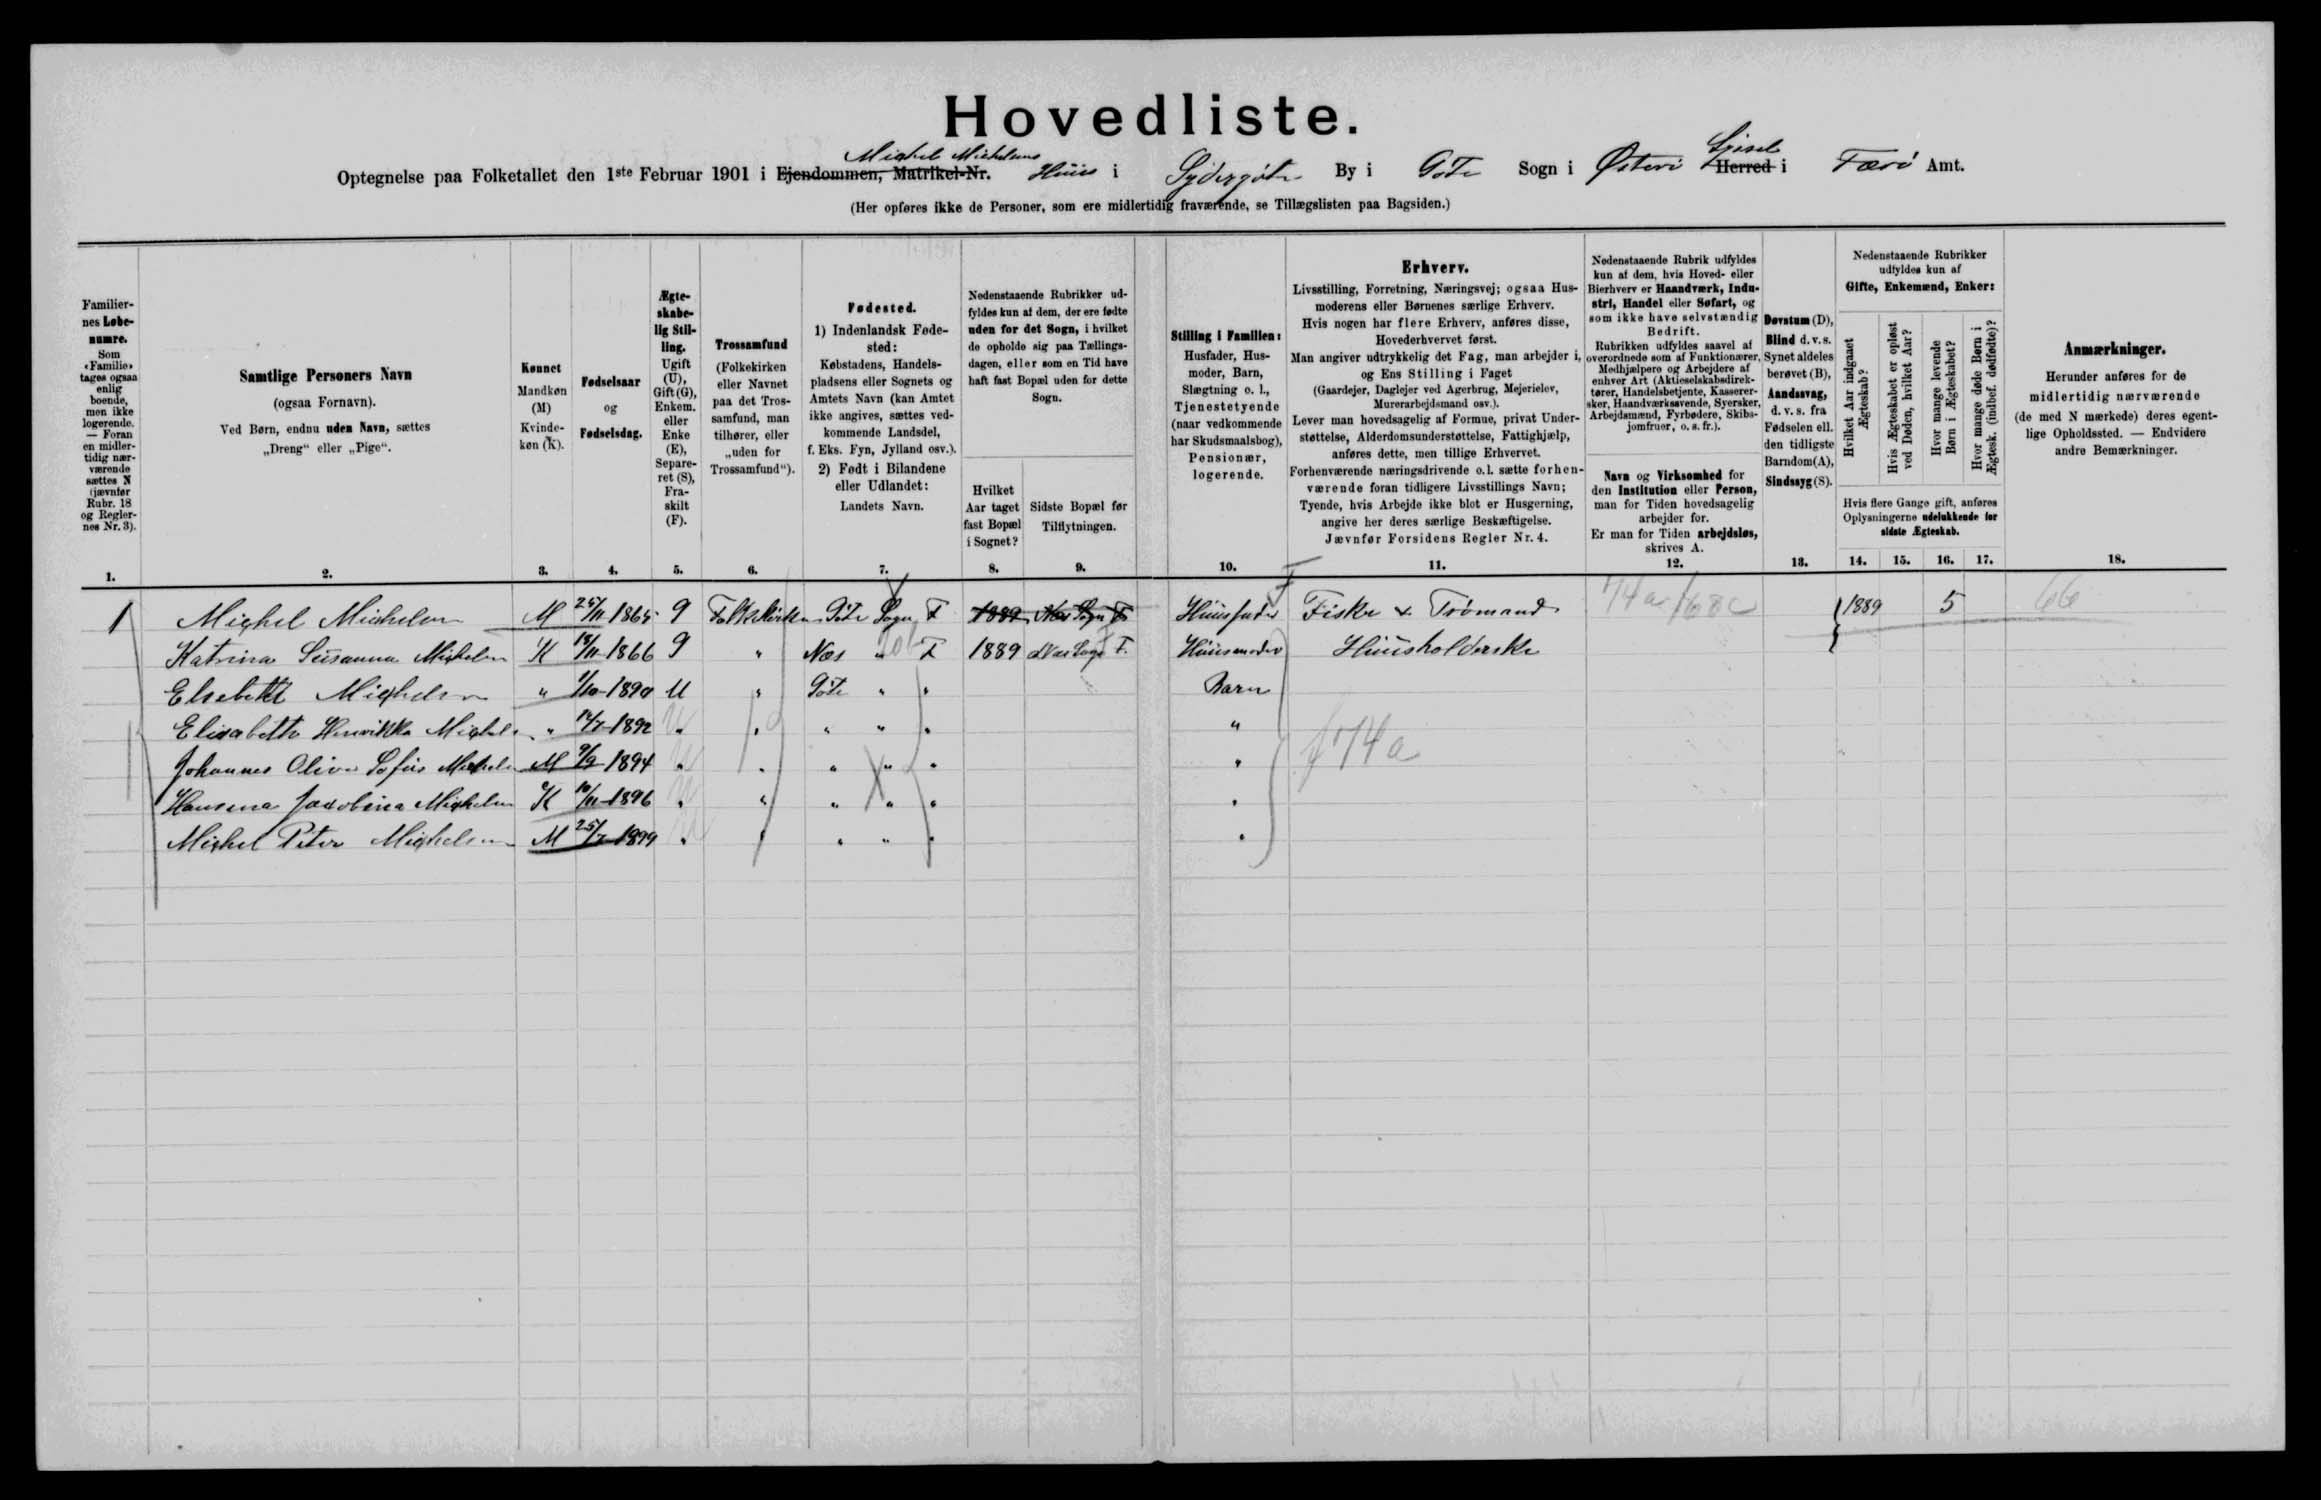 Hovedliste.
Michel Michelsens Sysel
Optegnelse paa Folketallet den 1ste Februar 1901 i Ejendommen, Matrikel-Nr. Huus i Sydergöte By i Göte Sogn i Österö Herred i Færö Amt.
(Her opføres ikke de Personer, som ere midlertidig fraværende, se Tillægslisten paa Bagsiden.)
Familiernes Løbenumre.
Som «Familie» tages ogsaa enlig boende, men ikke logerende. — Foran en midlertidig nærværende sættes N (jævnfør Rubr. 18 og Reglernes Nr. 3).
Samtlige Personers Navn
(ogsaa Fornavn).
Ved Børn, endnu uden Navn, sættes
„Dreng“ eller „Pige“.
Kønnet
Mandkøn (M)
Kvindekøn (K).
Fødselsaar
og
Fødselsdag.
Ægteskabelig Stilling.
Ugift (U), Gift (G), Enkem. eller Enke (E), Separeret (S), Fraskilt (F).
Trossamfund
(Folkekirken eller Navnet paa det Trossamfund, man tilhører, eller „uden for Trossamfund“).
Fødested.
1) Indenlandsk Fødested:
Købstadens, Handelspladsens eller Sognets og Amtets Navn (kan Amtet ikke angives, sættes vedkommende Landsdel, f. Eks. Fyn, Jylland osv.).
2) Født i Bilandene eller Udlandet:
Landets Navn.
Nedenstaaende Rubrikker udfyldes kun af dem, der ere fødte uden for det Sogn, i hvilket de opholde sig paa Tællingsdagen, eller som en Tid have haft fast Bopæl uden for dette Sogn.
Hvilket Aar taget fast Bopæl i Sognet?
Sidste Bopæl før Tilflytningen.
Stilling i Familien:
Husfader, Husmoder, Barn, Slægtning o. l., Tjenestetyende (naar vedkommende har Skudsmaalsbog), Pensionær, logerende.
Erhverv.
Livsstilling, Forretning, Næringsvej; ogsaa Husmoderens eller Børnenes særlige Erhverv.
Hvis nogen har flere Erhverv, anføres disse, Hovederhvervet først.
Man angiver udtrykkelig det Fag, man arbejder i, og Ens Stilling i Faget
(Gaardejer, Daglejer ved Agerbrug, Mejerielev, Murerarbejdsmand osv.).
Lever man hovedsagelig af Formue, privat Understøttelse, Alderdomsunderstøttelse, Fattighjælp, anføres dette, men tillige Erhvervet.
Forhenværende næringsdrivende o.l. sætte forhenværende foran tidligere Livsstillings Navn;
Tyende, hvis Arbejde ikke blot er Husgerning, angive her deres særlige Beskæftigelse.
Jævnfør Forsidens Regler Nr. 4.
Nedenstaaende Rubrik udfyldes kun af dem, hvis Hoved- eller Bierhverv er Haandværk, Industri, Handel eller Søfart, og som ikke have selvstændig Bedrift.
Rubrikken udfyldes saavel af overordnede som af Funktionærer, Medhjælpere og Arbejdere af enhver Art (Aktieselskabsdirektører, Handelsbetjente, Kasserersker, Haandværkssvende, Syersker, Arbejdsmænd, Fyrbødere, Skibsjomfruer, o. s. fr.).
Navn og Virksomhed for den Institution eller Person, man for Tiden hovedsagelig arbejder for.
Er man for Tiden arbejdsløs, skrives A.
Døvstum (D),
Blind d. v. s. Synet aldeles berøvet (B),
Aandssvag, d. v. s. fra Fødselen ell. den tidligste Barndom (A),
Sindssyg (S).
Nedenstaaende Rubrikker udfyldes kun af
Gifte, Enkemænd, Enker:
Hvilket Aar indgaaet Ægteskab?
Hvis Ægteskabet er opløst ved Døden, hvilket Aar?
Hvor mange levende Børn i Ægteskabet?
Hvor mange døde Børn i Ægtesk. (indbef. dødfødte)?
Hvis flere Gange gift, anføres Oplysningerne udelukkende for sidste Ægteskab.
Anmærkninger.
Herunder anføres for de midlertidig nærværende (de med N mærkede) deres egentlige Opholdssted. — Endvidere andre Bemærkninger.
1. 2. 3. 4. 5. 6. 7. 8. 9. 10. 11. 12. 13. 14. 15. 16. 17. 18.
1 Michel Michelsen M 25/11 1865 G Folkekirken Göte Sogn F 1889 Næs Sogn F Huusfader Fisker & Tromand 74a 68c 1889 5 66
Katrina Susanna Michelsen K 18/11 1866 G " Næs " F 1889 Næs Sogn F. Huusmoder Huusholderske
Elsebeth Michelsen " 1/10 1890 U " Göte " " Barn
Elisabeth Henrikka Michelsen " 12/7 1892 " " " " " "
Johannes Oliver Sofus Michelsen M 9/9 1894 " " " " " " f 74a
Hansina Jacobina Michelsen K 10/11 1896 " " " " " "
Michel Peter Michelsen M 25/7 1899 " " " " " "